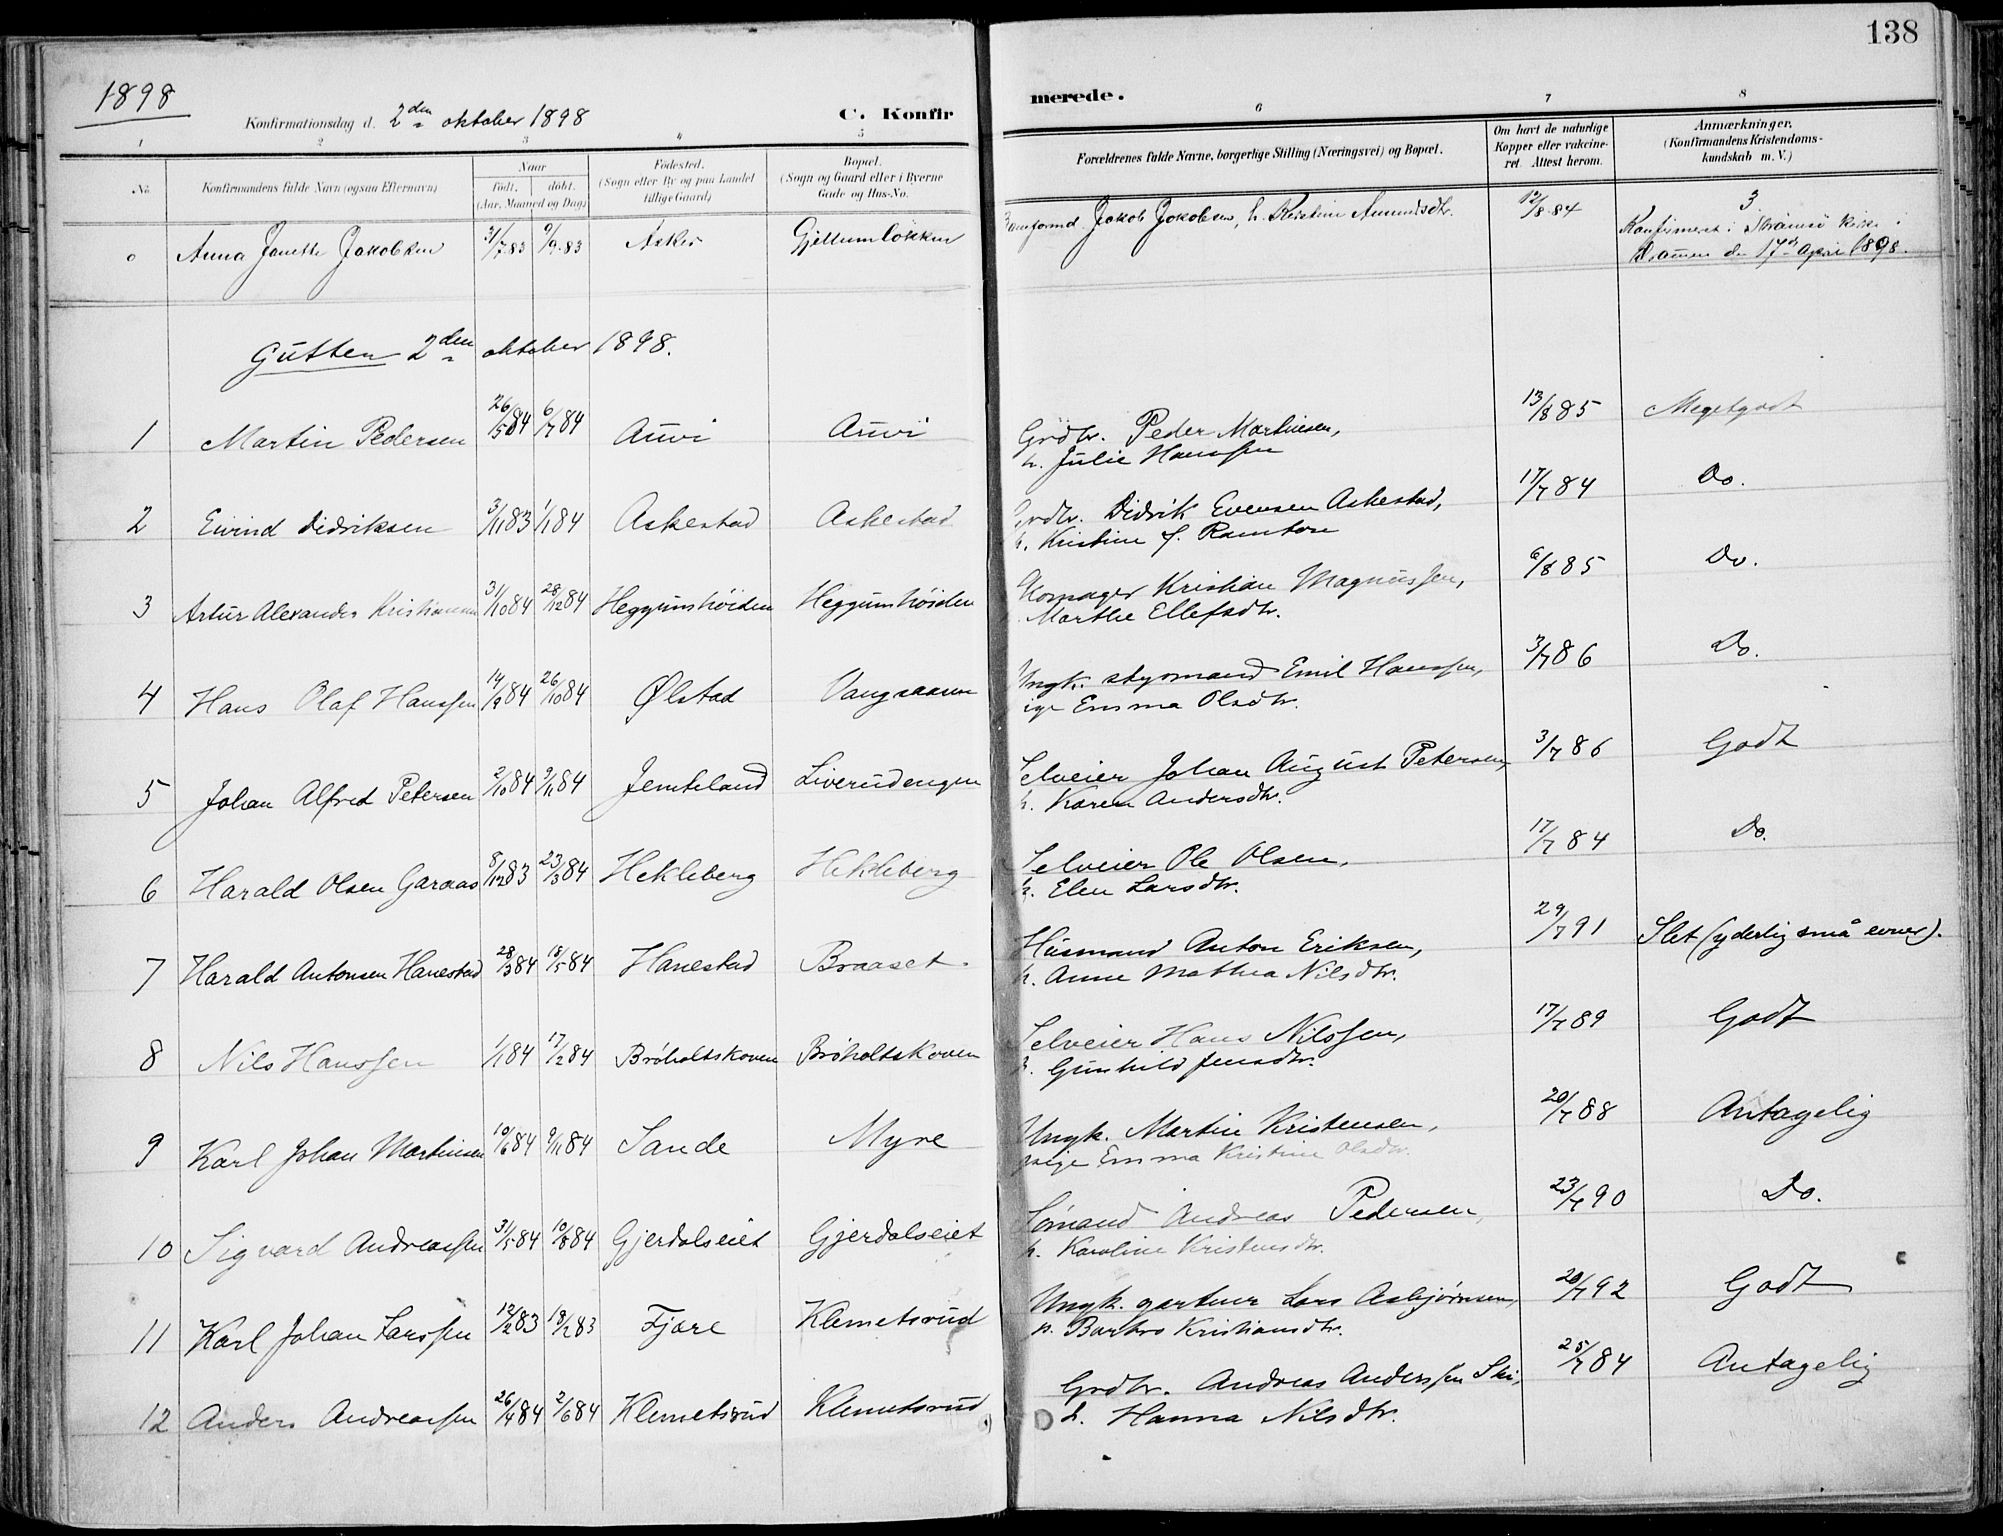 138
1898
Konfirmationsdag d. 2den oktober 1898
C. Konfirmerede.
1 2 3 4 5 6 7 8
No. Konfirmandens fulde Navn (ogsaa Efternavn) Naar født, døbt. (Aar, Maaned og Dag) Fødested. (Sogn eller By og paa Landet tillige Gaard) Bopæl. (Sogn og Gaard eller i Byerne Gade og Hus-No. Forældrenes fulde Navne, borgerlige Stilling (Næringsvei) og Bopæl. Om havt de naturlige Kopper eller vakcineret. Attest herom. Anmærkninger. (Konfirmandens Kristendomskundskab m. V.)
0 Anna Janette Jakobsen 31/7 83 9/9 83 Asker Gjellumløkken Jakob Jakobsen, h. Kristine Amundsdtr. 12/8 84 3
Konfirmeret i Strømsø kirke i
Drammen den 17de April 1898.
Gutter 2den oktober 1898.
1 Martin Pedersen 26/5 84 6/7 84 Auvi Auvi Grdbr. Peder Martinsen, 13/8 85 Megetgodt
h. Julie Hanssen
2 Eivind Didriksen 3/11 83 1/1 84 Askestad Askestad Grdbr. Didrik Evensen Askestad, 17/7 84 Do.
h. Kristine f. Ramton
3 Artur Alexander Kristiansen 31/10 84 28/12 84 Heggumshöiden Heggumhöiden Kristian Magnussen, 6/8 85 Do.
Marthe Ellefsdtr.
4 Hans Olaf Hanssen 14/9 84 26/10 84 Ølstad Vangsaasen Ungk. styrmand Emil Hanssen, 3/7 86 Do.
pige Emma Olsdtr.
5 Johan Alfred Petersen 2/10 84 9/11 84 Jemteland Liverudengen Selveier Johan August Petersen, 3/7 86 Godt
h. Karen Andersdtr.
6 Harald Olsen Garaas 8/12 83 23/3 84 Hekleberg Hekleberg Selveier Ole Olsen, 17/7 84 Do.
h. Elen Larsdtr.
7 Harald Antonsen Hanestad 28/3 84 18/5 84 Hanestad Braaset Husmand Anton Eriksen, 29/7 91 Slet (yderlig små evner).
h. Anne Mathea Nilsdtr.
8 Nils Hanssen 1/1 84 17/2 84 Bröholtskoven Bröholtskoven Selveier Hans Nilssen, 17/7 89 Godt
h. Gunhild Jensdtr.
9 Karl Johan Martinsen 10/6 84 9/11 84 Sande Myre Ungk. Martin Kristensen, 20/7 88 Antagelig
pige Emma Kristine Olsdtr.
10 Sigvard Andreassen 31/5 84 10/8 84 Gjerdalseiet Gjerdalseiet Sømand Andreas Pedersen, 23/7 90 Do.
h. Karoline Kristensdtr.
11 Karl Johan Larssen 12/2 83 18/2 83 Fjære Klemetsrud Ungk. gartner Lars Asbjørnsen, 20/7 92 Godt
p. Barbro Kristiansdtr.
12 Anders Andreassen 26/4 84 2/6 84 Klemetsrud Klemetsrud Grdbr. Andreas Anderssen Ski, 25/7 84 Antagelig
h. Hanna Nilsdtr.